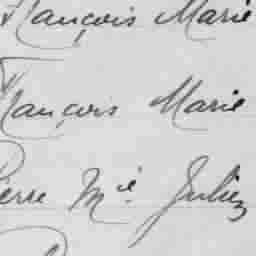 François Marie
François Marie
Pierre Mie Julien